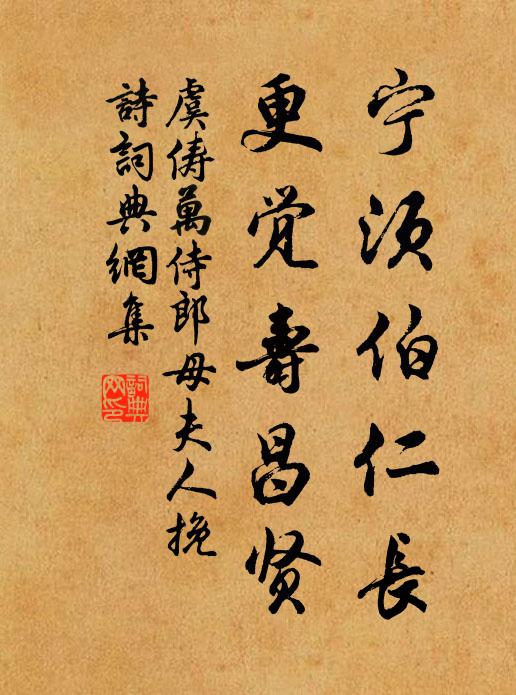 宁须伯仁長
更觉壽昌贤
虞俦萬侍郎母夫人挽
詩詞典網集
詞典網印